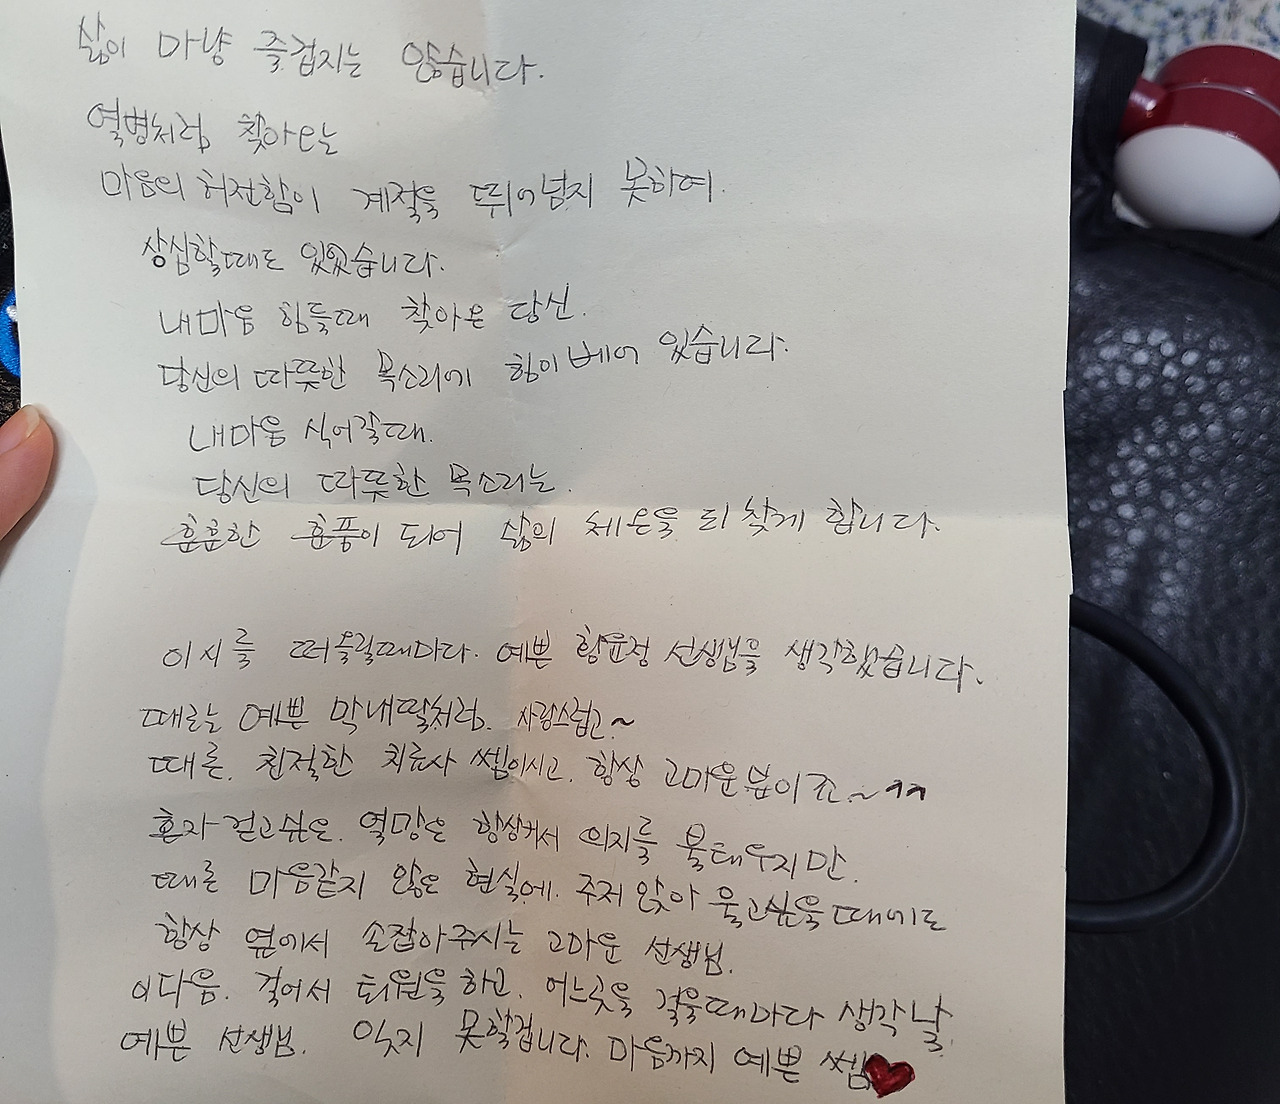 삶이 마냥 즐겁지는 않습니다.
열병처럼 찾아오는
마음의 허전함이 계절을 뛰어넘지 못하여.
상심할때도 있었습니다.
내마음 힘들때 찾아온 당신.
당신의 따뜻한 목소리에 힘이 베어 있습니다.
내마음 식어갈때.
당신의 따뜻한 목소리는.
훈훈한 훈풍이 되어 삶의 체온을 되찾게 합니다.
이시를 떠올릴때마다. 예쁜 황윤정 선생샘을 생각했습니다.
때로는 예쁜 막내딸처럼. 사랑스럽고~
때론. 친절한 치료사 쌤이시고. 항상 고마운분이죠~^^
혼자걷고싶은. 열망은 항상커서 의지를 불태우지만.
때론 마음같지 않은 현실에. 주저앉아 울고싶을때에도
항상 옆에서 손잡아주시는 고마운 선생님.
이다음. 걸어서 퇴원을 하고. 어느곳을 걸을때마다 생각날
예쁜 선생님. 잊지 못할겁니다. 마음까지 예쁜 쌤